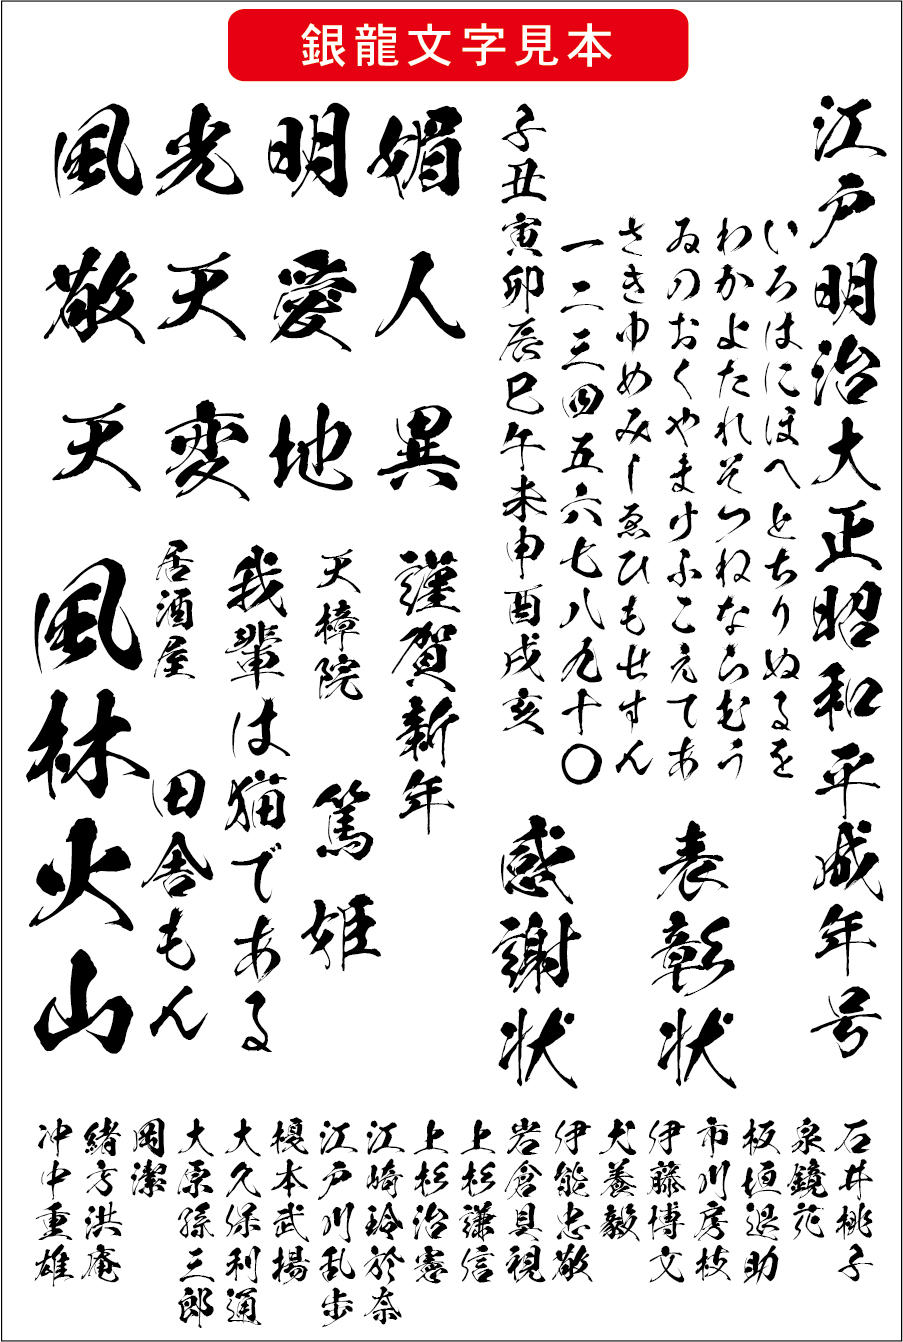 銀龍文字見本
江戸明治大正昭和平成年号
いろはにほへとちりぬるを
わかよたれそつねならむう
ゐのおくやまけふこえてあ
さきゆめみしゑひもせすん
一二三四五六七八九十〇
子丑寅卯辰巳午未申酉戌亥
表彰状
感謝状
媚人異
明愛地
光天変
風敬天
謹賀新年
天樟院
篤姫
我輩は猫である
居酒屋
田舎もん
風林火山
石井桃子
泉鏡花
板垣退助
市川房枝
伊藤博文
犬養毅
伊能忠敬
岩倉具視
上杉謙信
上杉治憲
江崎玲於奈
江戸川乱歩
榎本武揚
大久保利通
大原孫三郎
岡潔
緒方洪庵
冲中重雄